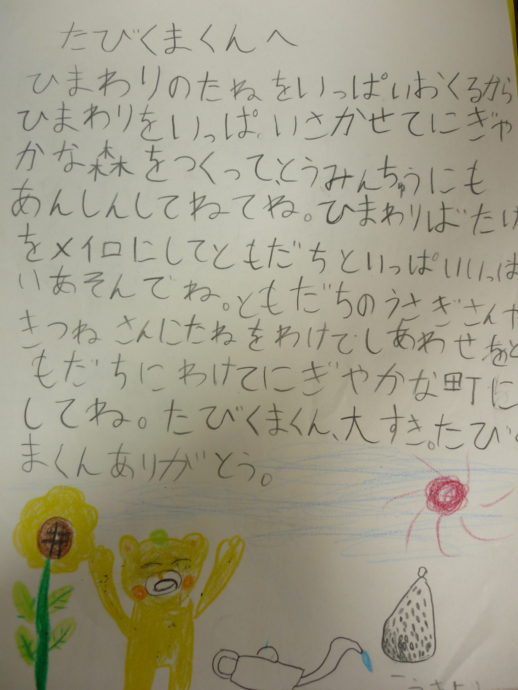 たびくまくんへ
ひまわりのたねをいっぱいおくるから
ひまわりをいっぱいさかせてにぎや
かな森をつくって、とうみんちゅうにも
あんしんしてねてね。ひまわりばたけ
をメイロにしてともだちといっぱいいっぱ
いあそんでね。ともだちのうさぎさんや
きつねさんにたねをわけてしあわせをと
もだちにわけてにぎやかな町に
してね。たびくまくん、大すき。たびく
まくんありがとう。